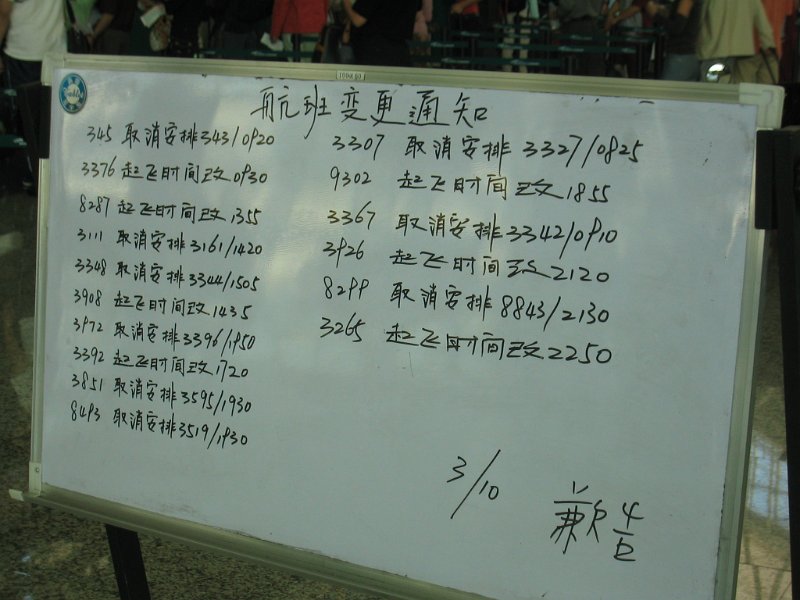 航班变更通知
345 取消安排343/0920
3376 起飞时间改0930
8287 起飞时间改1355
3111 取消安排3161/1420
3348 取消安排3344/1505
3908 起飞时间改1435
3972 取消安排3396/1950
3392 起飞时间改1720
3851 取消安排3595/1930
8493 取消安排3519/1930
3307 取消安排 3327/0825
9302 起飞时间改1855
3367 取消安排3342/0910
3926 起飞时间改2120
8299 取消安排8843/2130
3265 起飞时间改2250
3/10
歉告